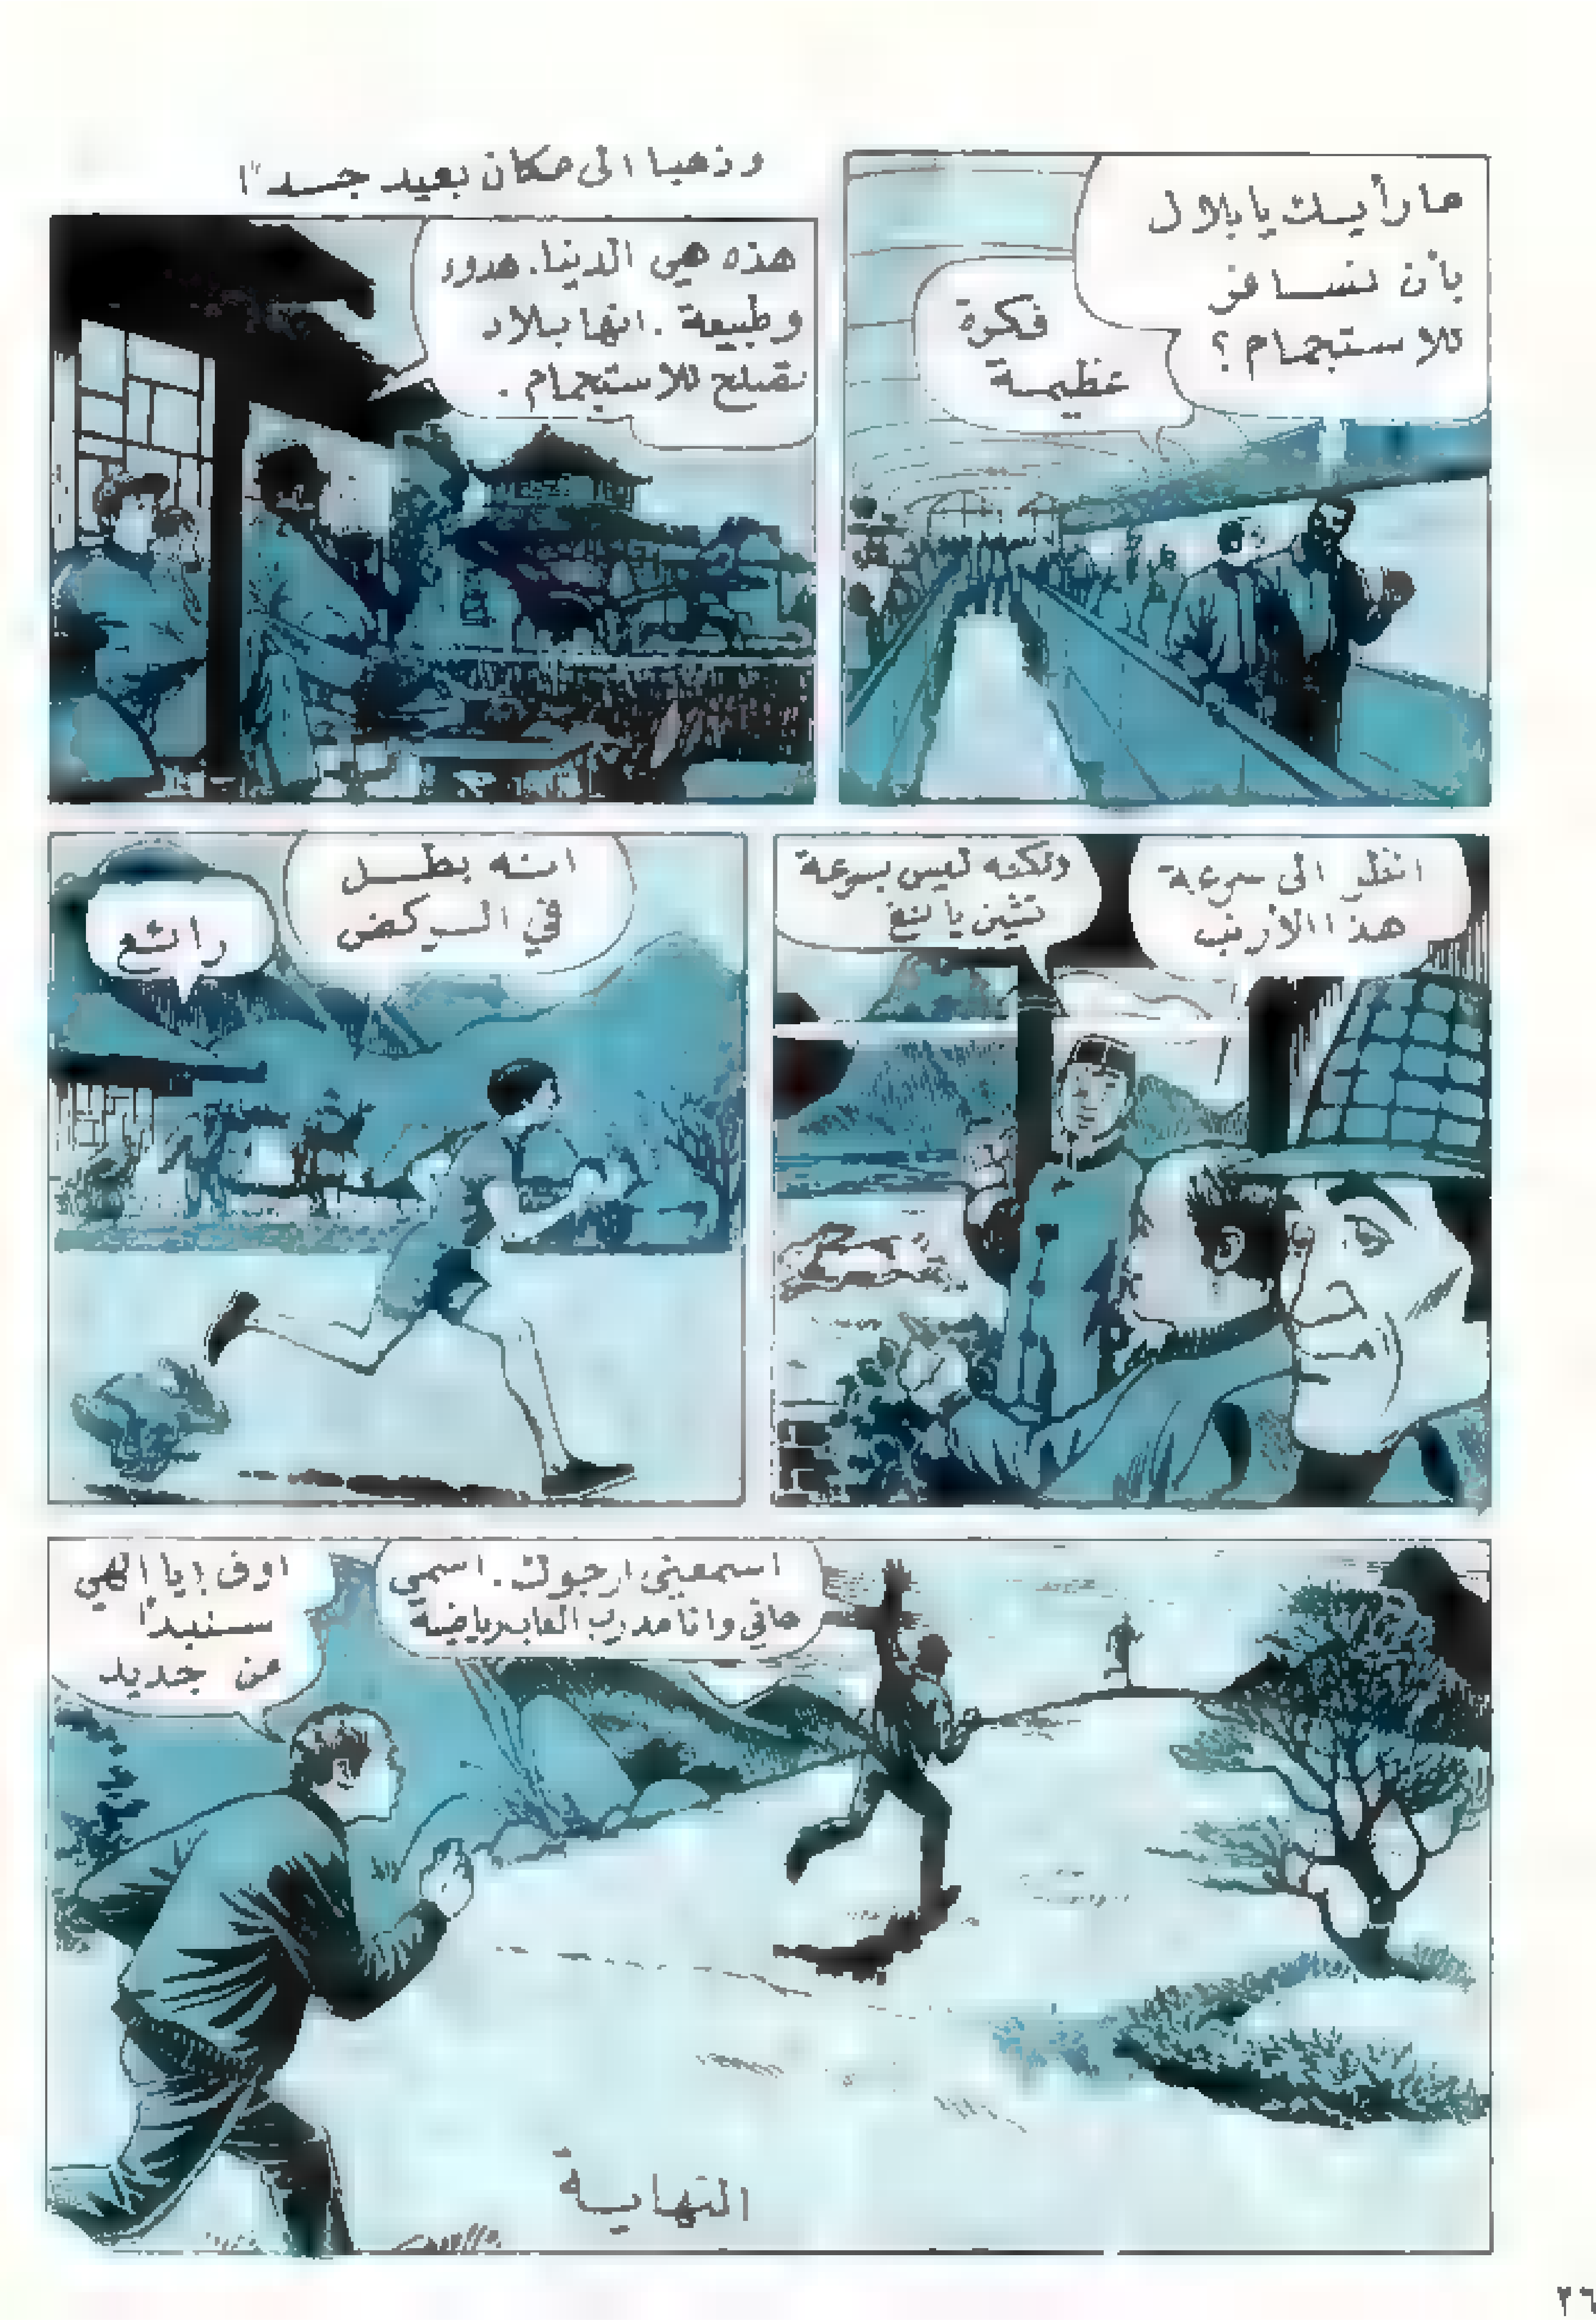 ما رأيك يا بلال
بأن نسافر
للاستجمام ؟
فكرة
عظيمة
وذهبا الى مكان بعيد جداً
هذه هي الدنيا. هدوء
وطبيعة . انها بلاد
تصلح للاستجمام .
انظر الى سرعة
هذا الأرنب
ولكنه ليس بسرعة
تشين يا لنغ
انه بطل
في الركض
رائع
اسمعيني ارجوك . اسمي
هاني وانا مدرب العاب رياضية
اوف ! يا الهي
سنبدأ
من جديد
النهاية
٢٦